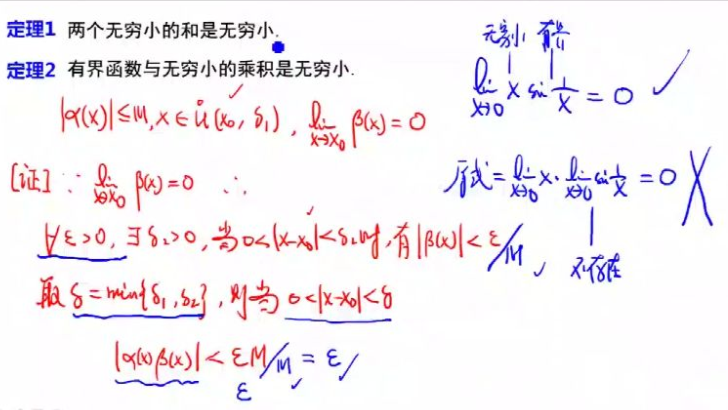 定理1 两个无穷小的和是无穷小.
定理2 有界函数与无穷小的乘积是无穷小.
|α(x)|≤M, x∈Ů(x₀, δ₁), lim x→x₀ β(x)=0
[证] ∵ lim x→x₀ β(x)=0 ∴
∀ε>0, ∃δ₂>0, 当0<|x-x₀|<δ₂时, 有|β(x)|<ε/M
取δ=min{δ₁,δ₂}, 则当 0<|x-x₀|<δ
|α(x)β(x)|<εM/M=ε
ε
无穷小 有界
lim x→0 x sin 1/x = 0 ✓
原式=lim x→0 x·lim x→0 sin 1/x = 0 ╳
不存在